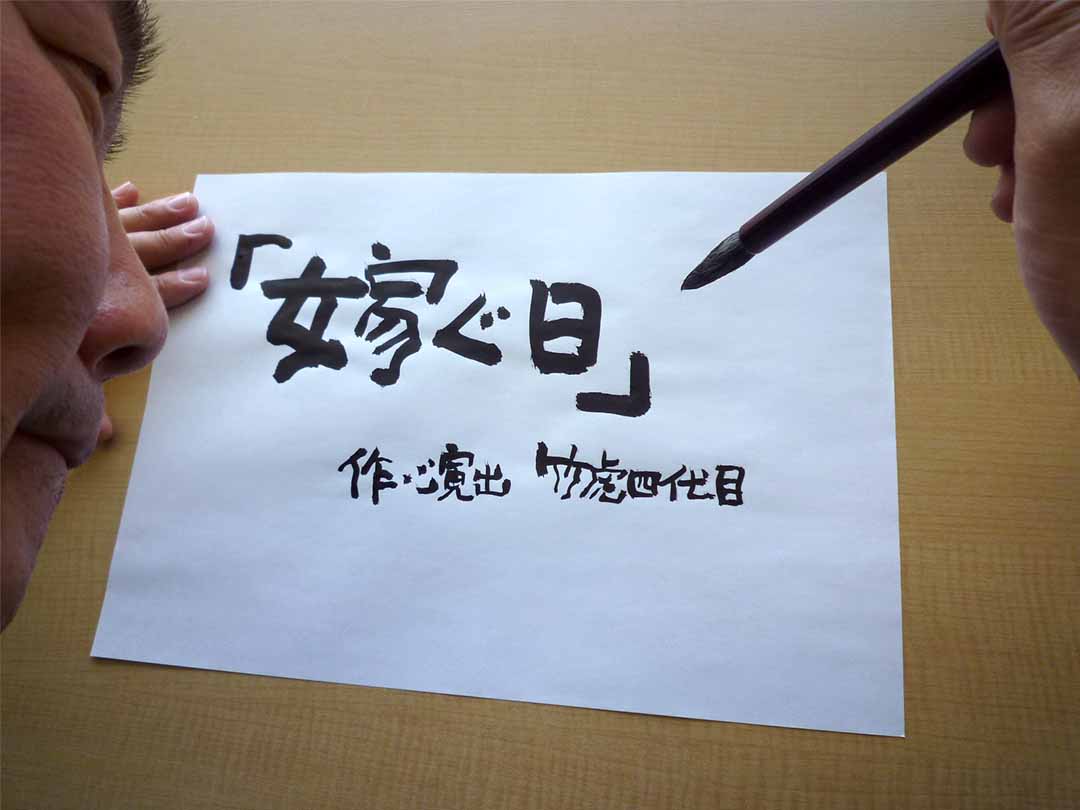 「嫁ぐ日」
作・演出 竹虎四代目